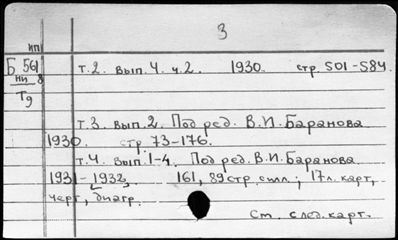 3
ип
Б 561
ни 8
т.2. вып. 4. ч.2. 1930. стр. 501-584.
Т9
т.3. вып. 2. Под ред. В.И. Баранова
1930. стр. 73-176.
т.4. вып. 1-4. Под ред. В.И. Баранова
1931-1932. 161, 89 стр. илл.; 17 л. карт,
черт, диагр.
См. след. карт.